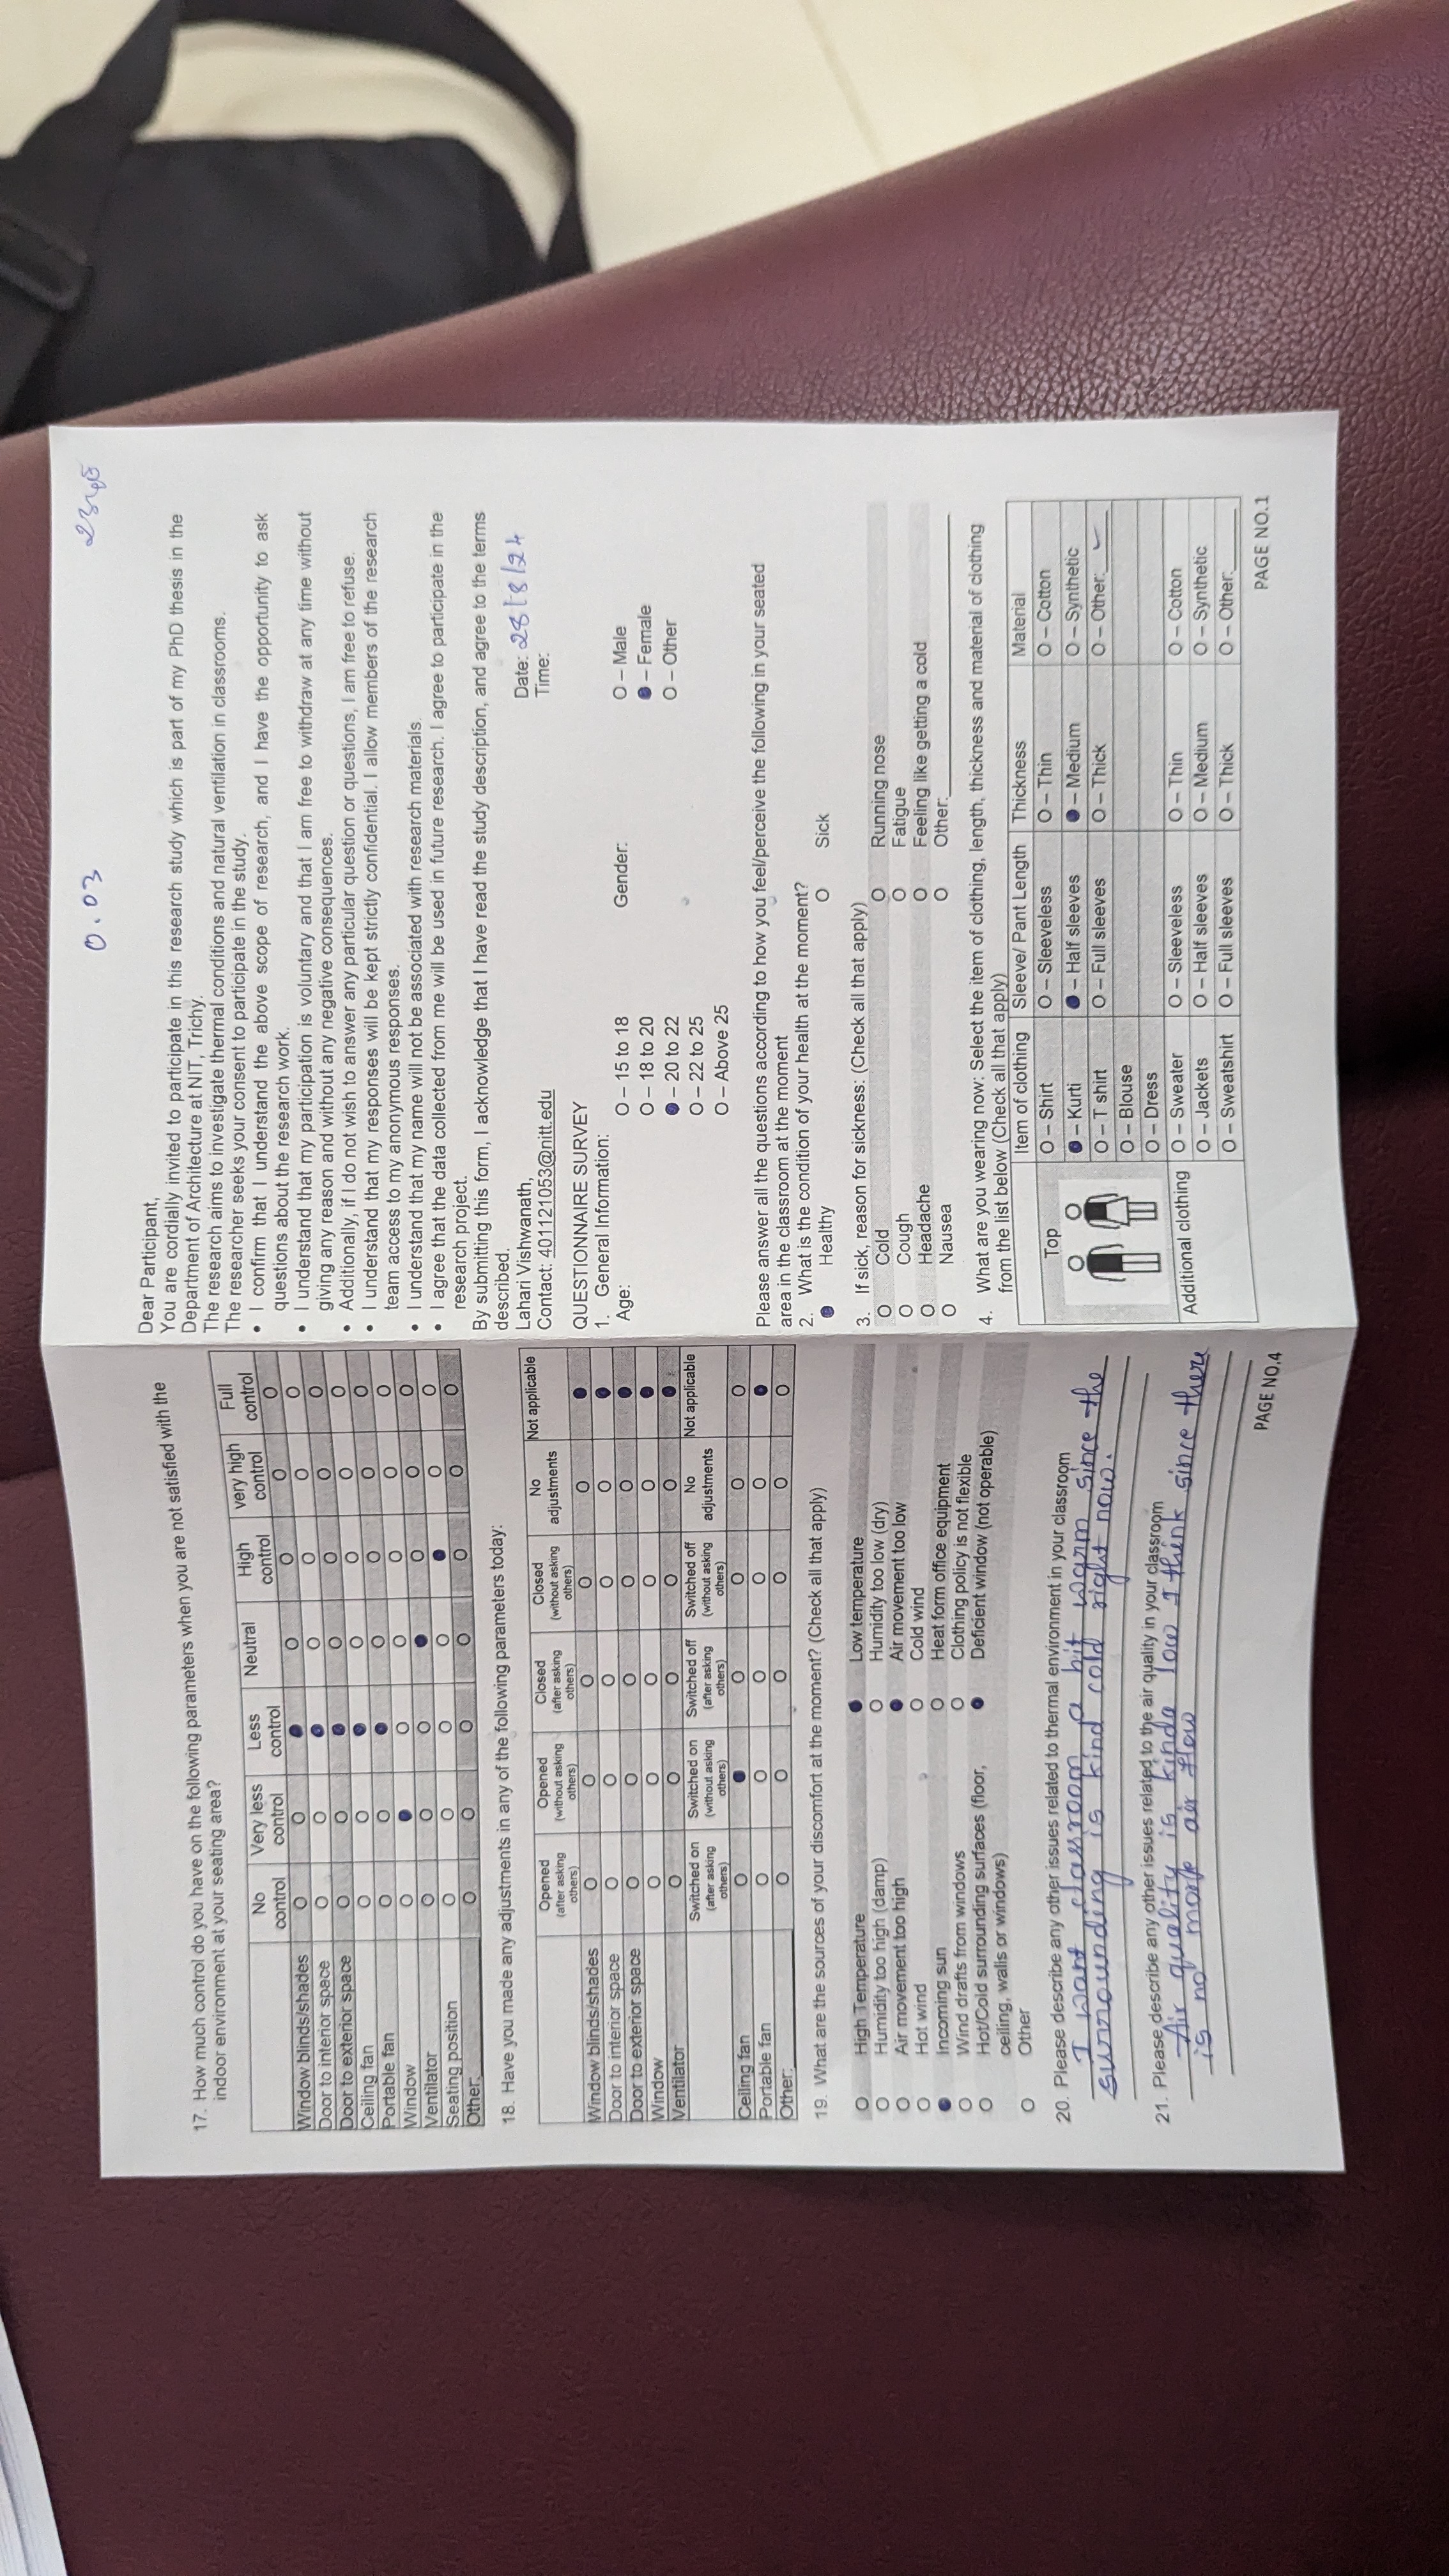 17. How much control do you have on the following parameters when you are not satisfied with the
indoor environment at your seating area?
No control Very less control Less control Neutral High control very high control Full control
Window blinds/shades O O ● O O O O
Door to interior space O O ● O O O O
Door to exterior space O O ● O O O O
Ceiling fan O O ● O O O O
Portable fan O O ● O O O O
Window O ● O O O O O
Ventilator O O O ● O O O
Seating position O O O O ● O O
Other: O O O O O O O
18. Have you made any adjustments in any of the following parameters today:
Opened (after asking others) Opened (without asking others) Closed (after asking others) Closed (without asking others) No adjustments Not applicable
Window blinds/shades O O O O O ●
Door to interior space O O O O O ●
Door to exterior space O O O O O ●
Window O O O O O ●
Ventilator O O O O O ●
Switched on (after asking others) Switched on (without asking others) Switched off (after asking others) Switched off (without asking others) No adjustments Not applicable
Ceiling fan O ● O O O O
Portable fan O O O O O ●
Other: O O O O O O
19. What are the sources of your discomfort at the moment? (Check all that apply)
O High Temperature ● Low temperature
O Humidity too high (damp) O Humidity too low (dry)
O Air movement too high ● Air movement too low
O Hot wind O Cold wind
● Incoming sun O Heat form office equipment
O Wind drafts from windows O Clothing policy is not flexible
O Hot/Cold surrounding surfaces (floor, ● Deficient window (not operable)
ceiling, walls or windows)
O Other
20. Please describe any other issues related to thermal environment in your classroom
I want classroom a bit warm since the
surrounding is kind cold right now.
21. Please describe any other issues related to the air quality in your classroom
Air quality is kinda low I think since there
is no more air flow
PAGE NO.4
0.03 2345
Dear Participant,
You are cordially invited to participate in this research study which is part of my PhD thesis in the
Department of Architecture at NIT, Trichy.
The research aims to investigate thermal conditions and natural ventilation in classrooms.
The researcher seeks your consent to participate in the study.
• I confirm that I understand the above scope of research, and I have the opportunity to ask
questions about the research work.
• I understand that my participation is voluntary and that I am free to withdraw at any time without
giving any reason and without any negative consequences.
• Additionally, if I do not wish to answer any particular question or questions, I am free to refuse.
• I understand that my responses will be kept strictly confidential. I allow members of the research
team access to my anonymous responses.
• I understand that my name will not be associated with research materials.
• I agree that the data collected from me will be used in future research. I agree to participate in the
research project.
By submitting this form, I acknowledge that I have read the study description, and agree to the terms
described.
Lahari Vishwanath, Date: 28/8/24
Contact: 401121053@nitt.edu Time:
QUESTIONNAIRE SURVEY
1. General Information:
Age: O – 15 to 18 Gender: O – Male
O – 18 to 20 ● – Female
● – 20 to 22 O – Other
O – 22 to 25
O – Above 25
Please answer all the questions according to how you feel/perceive the following in your seated
area in the classroom at the moment
2. What is the condition of your health at the moment?
● Healthy O Sick
3. If sick, reason for sickness: (Check all that apply)
O Cold O Running nose
O Cough O Fatigue
O Headache O Feeling like getting a cold
O Nausea O Other:
4. What are you wearing now: Select the item of clothing, length, thickness and material of clothing
from the list below (Check all that apply)
Item of clothing Sleeve/ Pant Length Thickness Material
Top O – Shirt O – Sleeveless O – Thin O – Cotton
● – Kurti ● – Half sleeves ● – Medium O – Synthetic
O – T shirt O – Full sleeves O – Thick O – Other: ✓
O – Blouse
O – Dress
Additional clothing O – Sweater O – Sleeveless O – Thin O – Cotton
O – Jackets O – Half sleeves O – Medium O – Synthetic
O – Sweatshirt O – Full sleeves O – Thick O – Other:
PAGE NO.1